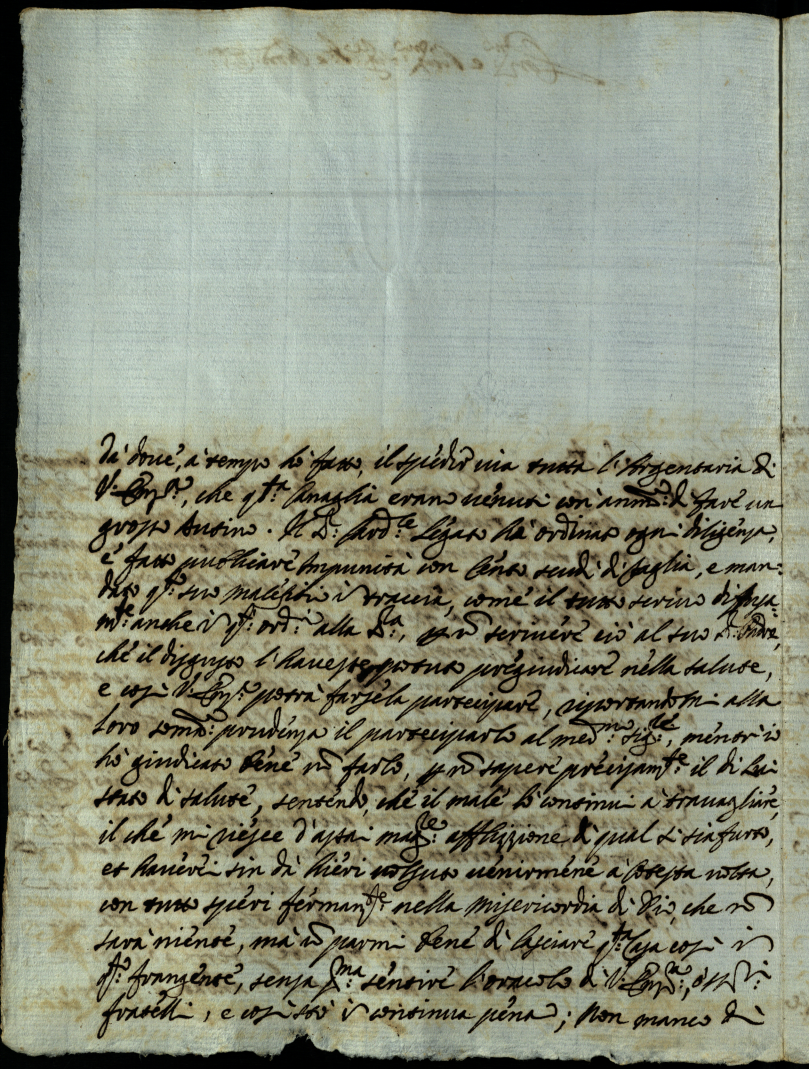 da dove, a tempo hò fatto, il spedir via tutta l'Argentaria di
V. Em.ᵃ, che q.ᵗᵃ Canaglia eran venuti con anim.º di fare un
grosso butino. Il S.ʳ Card.ˡᵉ Legato hà ordinato ogni diligenza,
e fatto publicare Impunità con Cento scudi di taglia, e man-
dato q.ᵗⁱ suo malefitii in traccia, come il tutto scrivo
m.ᵗᵉ anche in q.ᵗº ord.º alla S.ʳᵃ, p nō scrivere ciò al suo S.ʳ
che il disgusto l'havesse potuto pregiudicare nella salute,
e così V. Em.ᵃ potrà farsela participare, riportandomi alla
loro som.ᵃ prudenza il participarlo al med.ᵐº Sig.ʳᵉ, mentr'io
hò giudicato bene nō farlo, p nō sapere precisam.ᵗᵉ il di Lui
stato di salute, sentendo, che il male lo continui à travagliare,
il che mi riesce d'assai mag.ʳᵉ afflizzione di qual si sia furto,
et haverei sin da hieri volsuto venirmene à cotesta volta,
con tutto speri ferman.ᵗᵉ nella misericordia di Dio, che nō
sarà niente, mà nō parmi bene di lasciare q.ᵗᵃ Casa così in
q.ᵗº frangente, senza p.ᵐᵃ sentire l'oracolo di V. Em.ᵃ, ò
fratelli, e così stò in continua pena; Non manco di